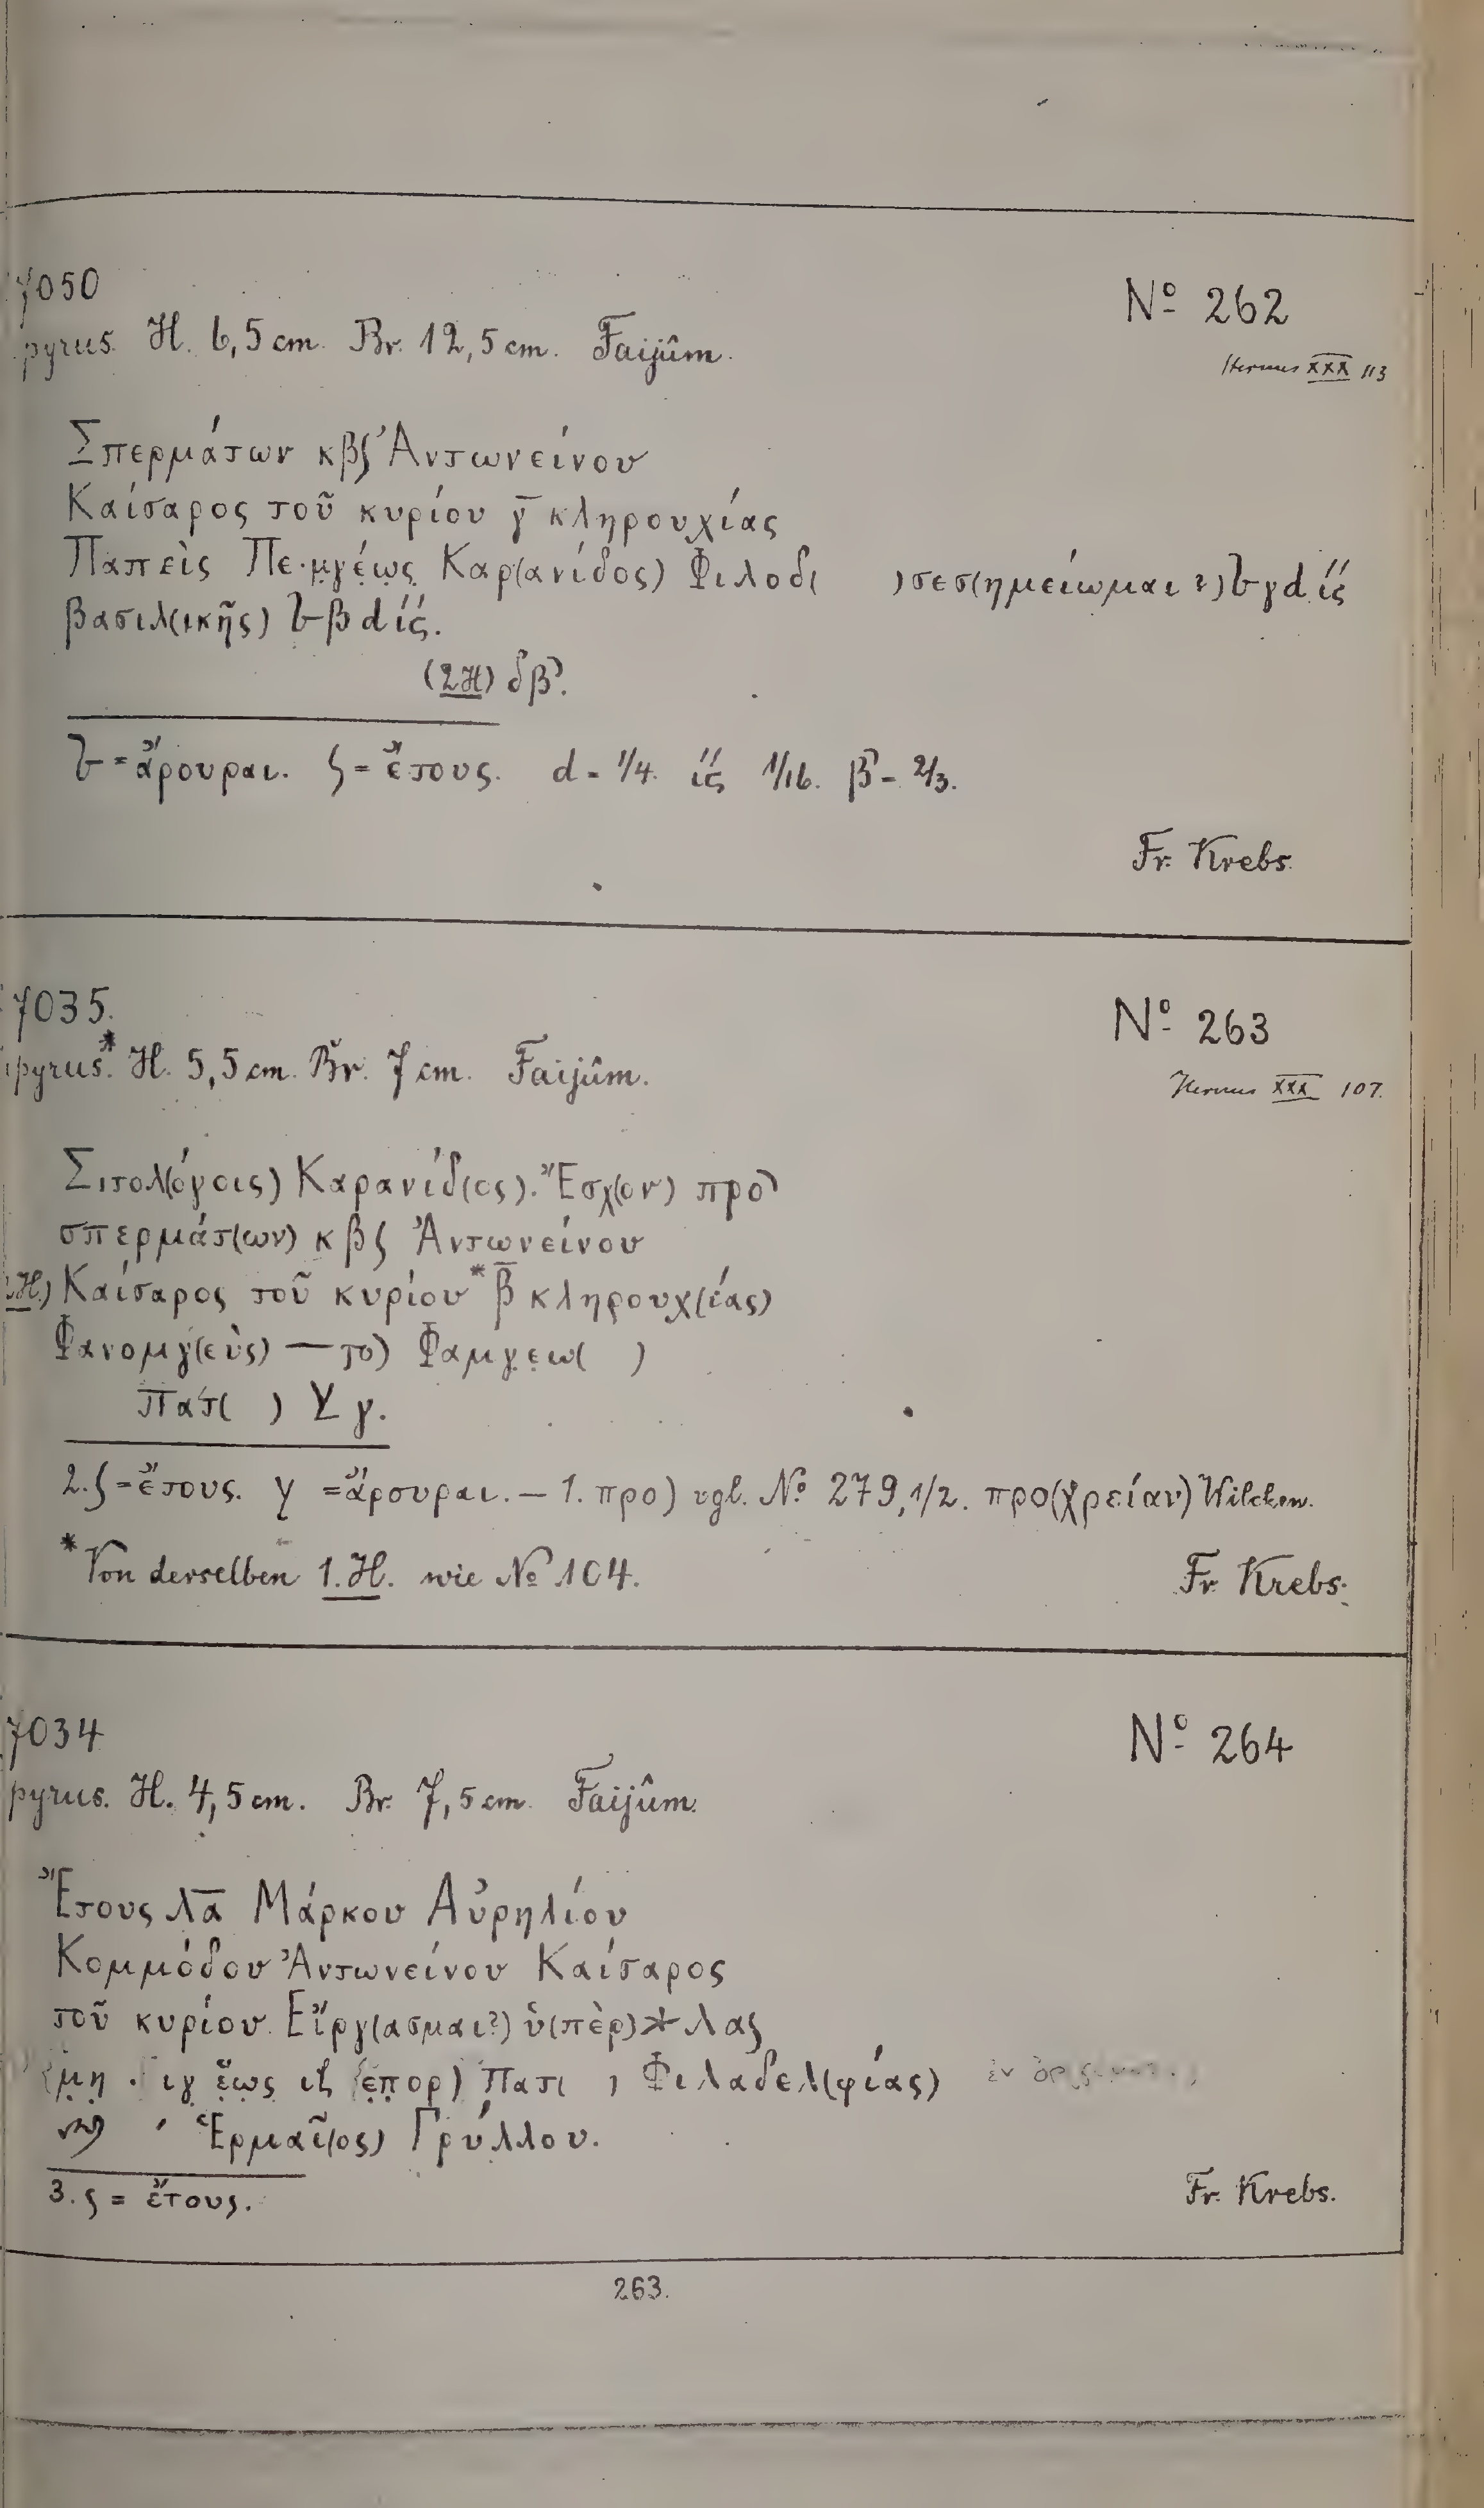 7050
Nº 262
pyrus. H. 6,5 cm. Br. 12,5 cm. Faijûm.
Hermes XXX 113
Σπερμάτων κβϛ Ἀντωνείνου
Καίσαρος τοῦ κυρίου γ̄ κληρουχίας
Παπεὶς Πε·μγέως Καρ(ανίδος) Φιλοδ( ) σεσ(ημείωμαι?) ƀ γ d ίς́
βασιλ(ικῆς) ƀ β d ίς́.
(2H) δβ̓.
ƀ = ἄρουραι. ϛ = ἔτους. d = 1/4. ίς́ 1/16. β̓ = 2/3.
Fr. Krebs.
7035.
Nº 263
pyrus.* H. 5,5 cm. Br. 7 cm. Faijûm.
Hermes XXX 107.
Σιτολ(όγοις) Καρανίδ(ος). Ἔσχ(ον) προ)
σπερμάτ(ων) κβϛ Ἀντωνείνου
H.) Καίσαρος τοῦ κυρίου * β̄ κληρουχ(ίας)
Φανομγ(εὺς) — το) Φαμγεω( )
Πατ( ) γ.
2. ϛ = ἔτους. = ἄρουραι. — 1. προ) vgl. Nº 279,1/2. προ(χρείαν) Wilcken.
* Von derselben 1. H. wie Nº 104.
Fr. Krebs.
7034
Nº 264
pyrus. H. 4,5 cm. Br. 7,5 cm. Faijûm.
Ἔτους λᾱ Μάρκου Αὐρηλίου
Κομμόδου Ἀντωνείνου Καίσαρος
τοῦ κυρίου. Εἴργ(ασμαι?) ὑ(πὲρ) * λαϛ
μη . ιγ ἕως ιζ ἐπορ) Πατ( ) Φιλαδελ(φίας)
Ἑρμαῖ(ος) Γρύλλου.
3. ϛ = ἔτους.
Fr. Krebs.
263.